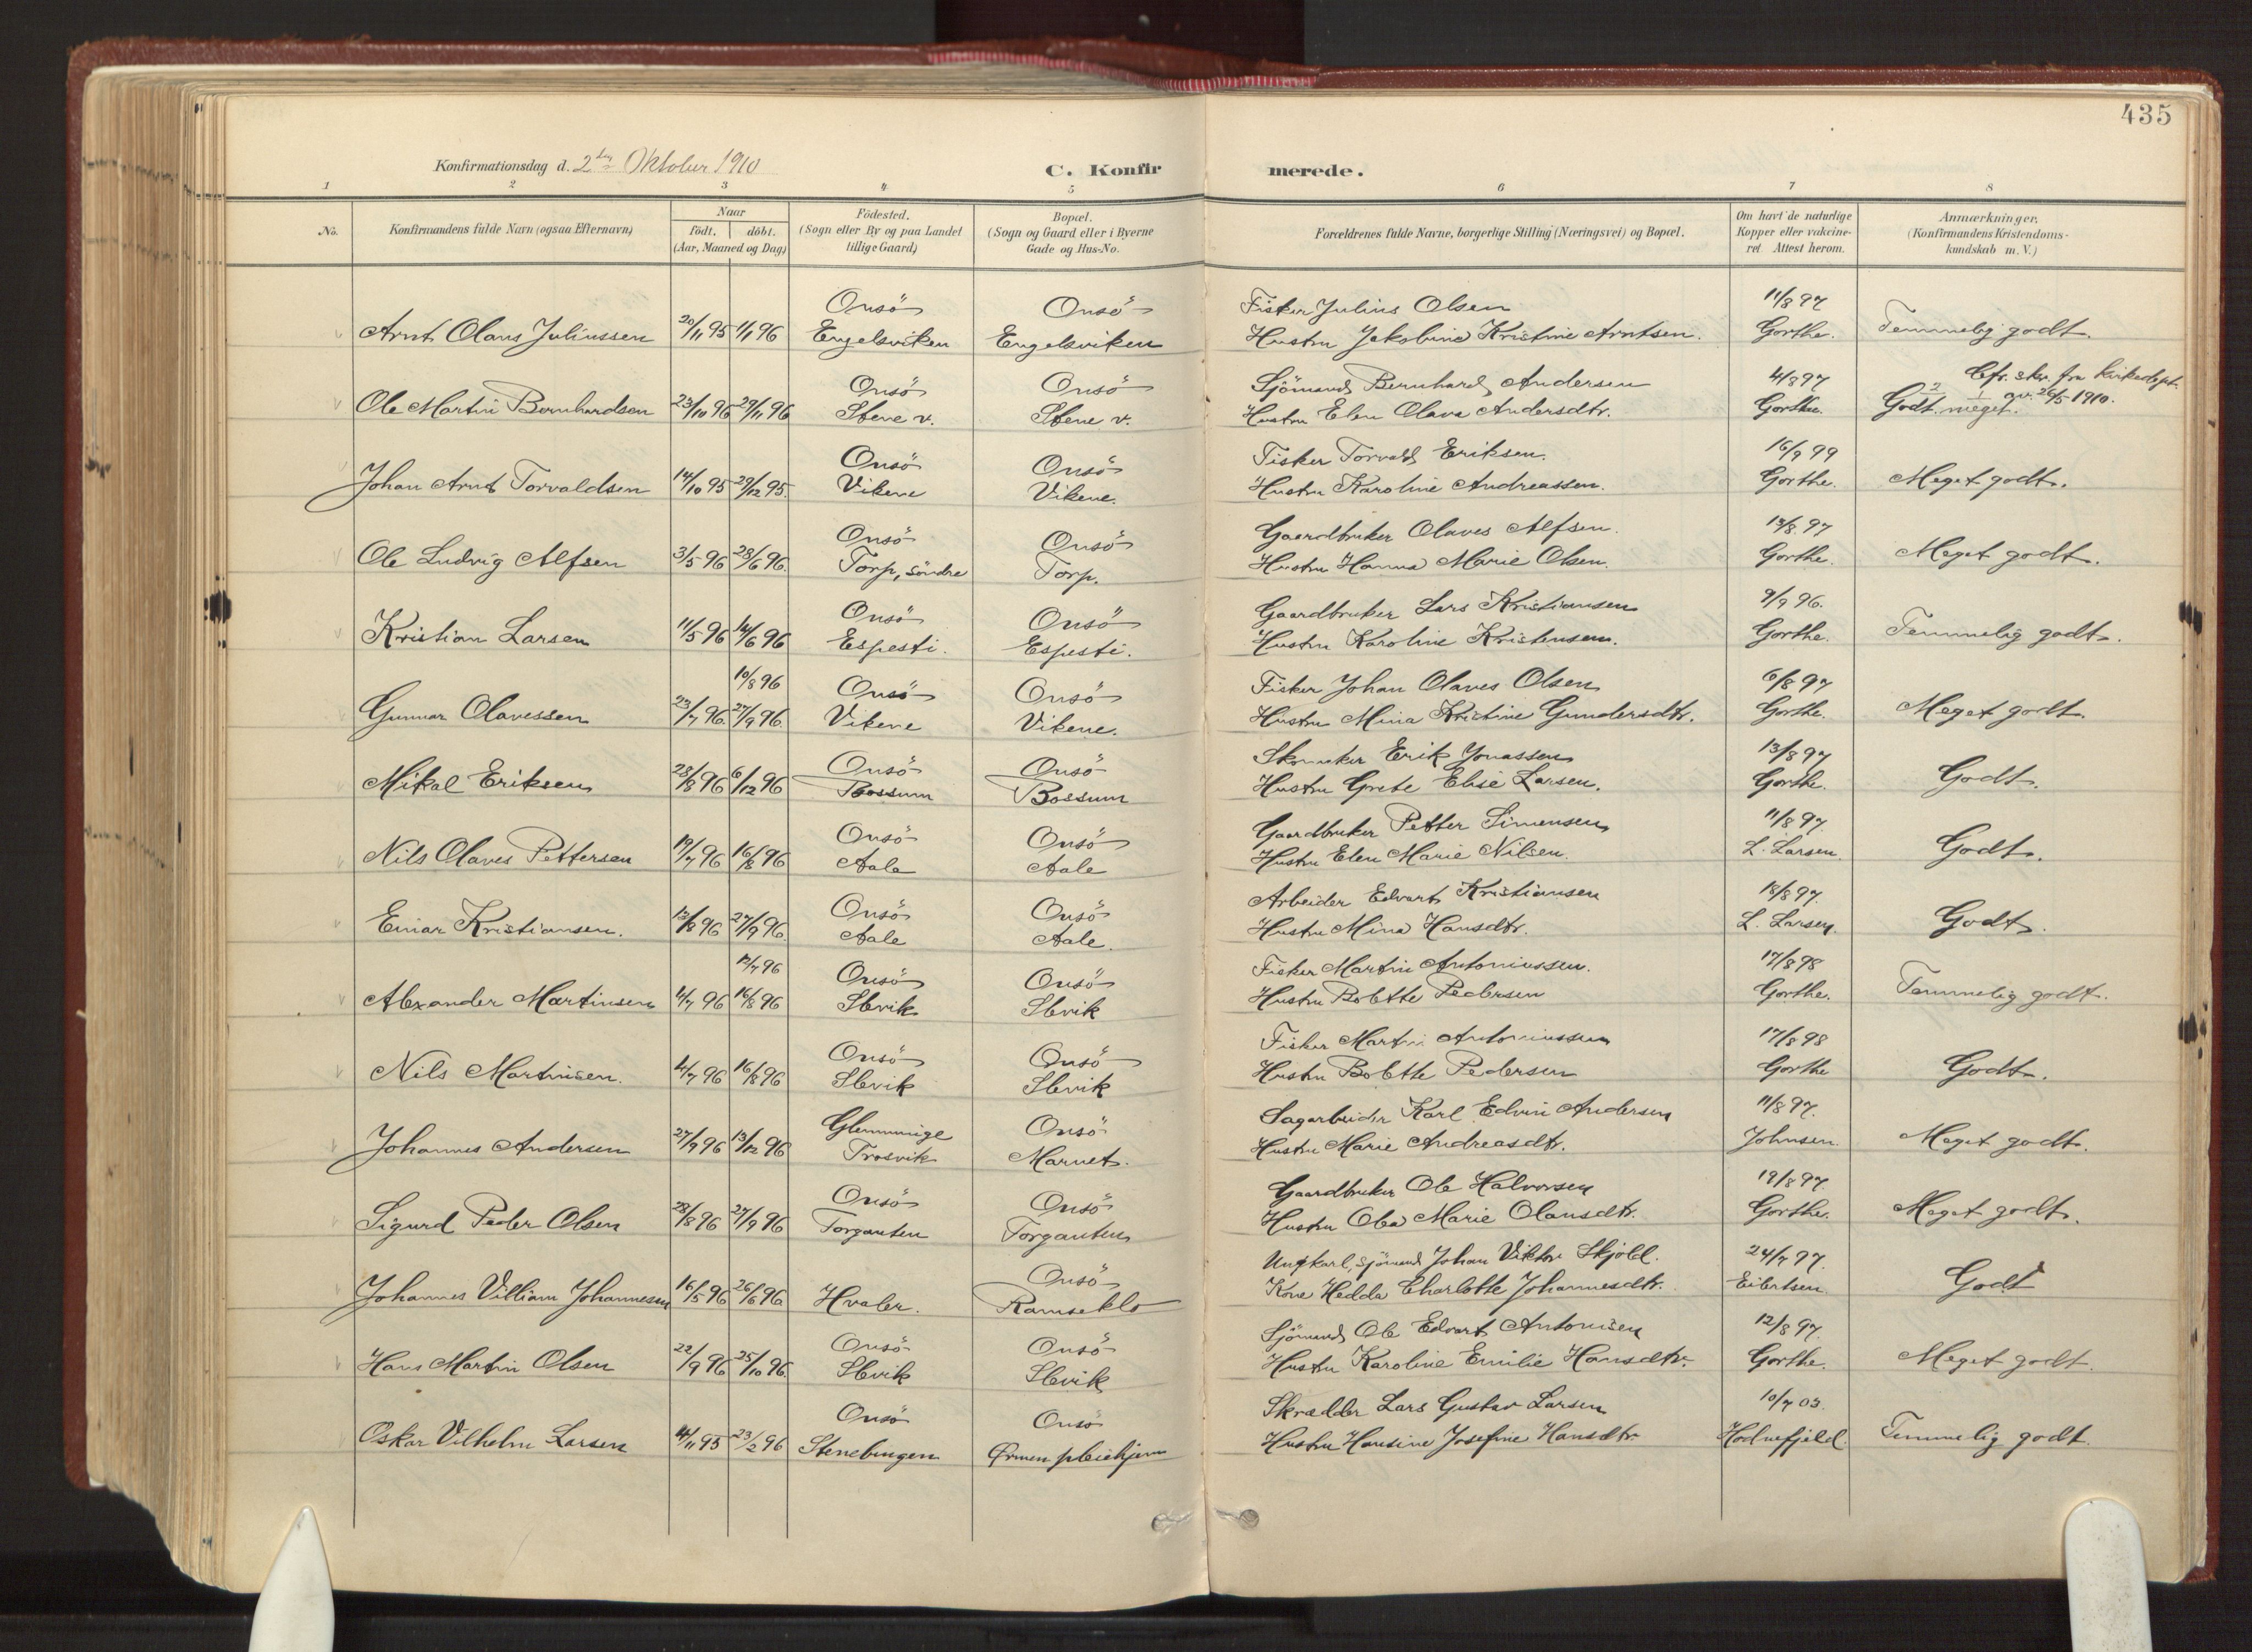 435
Konfirmationsdag d. 2den Oktober 1910 C. Konfirmerede.
1 2 3 4 5 6 7 8
No.
Konfirmandens fulde Navn (ogsaa Efternavn)
Naar
födt. döbt.
(Aar, Maaned og Dag)
Födested.
(Sogn eller By og paa Landet
tillige Gaard)
Bopæl.
(Sogn og Gaard eller i Byerne
Gade og Hus-No.
Forældrenes fulde Navne, borgerlige Stilling (Næringsvei) og Bopæl.
Om havt de naturlige
Kopper eller vakcine-
ret. Attest herom.
Anmærkninger.
(Konfirmandens Kristendoms-
kundskab m. V.)
Onsö Onsö Fisker Julius Olsen 11/8 97
Arnt Olaus Juliussen 20/11 95 1/1 96 Engelsviken Engelsviken Hustru Jakobine Kristine Arntsen. Gorthe. Temmelig godt.
Onsö Onsö Sjömand Bernhard Andersen 4/8 97 Cfr. skr. fra Kirkedept.
Ole Martin Bernhardsen 23/10 96 29/11 96 Stene v. Stene v. Hustru Elen Olava Andersdtr. Gorthe. Godt. 2 meget. 1 av. 26/5 1910.
Onsö Onsö Fisker Torvald Eriksen. 16/9 99
Johan Arnt Torvaldsen 14/10 95 29/12 95. Vikene Vikene. Hustru Karoline Andreassen. Gorthe. Meget godt.
Onsö Onsö Gaardbruker Olaves Alfsen. 13/8 97
Ole Ludvig Alfsen 3/5 96 28/6 96. Torp, söndre Torp. Hustru Hanna Marie Olsen. Gorthe. Meget godt.
Onsö Onsö Gaardbruker Lars Kristiansen 9/9 96.
Kristian Larsen 11/5 96 14/6 96 Espesti. Espesti. Hustru Karoline Kristensen. Gorthe. Temmelig godt.
10/8 96 Onsö Onsö Fisker Johan Olaves Olsen 6/8 97
Gunnar Olavessen 23/7 96. 27/9 96. Vikene Vikene. Hustru Mina Kristine Gundersdtr. Gorthe. Meget godt.
Onsö Onsö Skomaker Erik Jonassen 13/8 97
Mikal Eriksen 28/8 96 6/12 96 Bossum Bossum Hustru Grete Elise Larsen. Gorthe. Godt.
Onsö Onsö Gaardbruker Petter Simensen 11/8 97.
Nils Olaves Pettersen 19/7 96 16/8 96 Aale Aale Hustru Elen Marie Nilsen. L. Larsen. Godt.
Onsö Onsö Arbeider Edvart Kristiansen 18/8 97.
Einar Kristiansen. 13/8 96 27/9 96. Aale Aale. Hustru Mina Hansdtr. L. Larsen. Godt.
12/7 96 Onsö Onsö Fisker Martin Antoniussen. 17/8 98
Alexander Martinsen 4/7 96 16/8 96 Slevik Slevik Hustru Bolette Pedersen Gorthe. Temmelig godt.
Onsö Onsö Fisker Martin Antoniussen 17/8 98
Nils Martinsen. 4/7 96 16/8 96 Slevik Slevik Hustru Bolette Pedersen Gorthe Godt.
Glemminge Onsö Sagarbeider Karl Edvin Andersen 11/8 97.
Johannes Andersen 27/9 96 13/12 96 Trosvik Marnet. Hustru Marie Andreasdtr. Johnsen. Meget godt.
Onsö Onsö Gaardbruker Ole Halvorsen 19/8 97.
Sigurd Peder Olsen 28/8 96 27/9 96 Torgauten Torgauten Hustru Olea Marie Olausdtr. Gorthe. Meget godt.
Onsö Ungkarl, sjömand Johan Viktor Skjold. 24/7 97.
Johannes Villiam Johannesen 16/5 96 26/6 96. Hvaler. Ramseklo Kone Hedda Charlotte Johannesdtr. Eilertsen. Godt
Onsö Onsö Sjömand Ole Edvart Antonisen 12/8 97.
Hans Martin Olsen 22/9 96 25/10 96. Slevik Slevik Hustru Karoline Emilie Hansdtr. Gorthe. Meget godt.
Onsö Onsö Skrædder Lars Gustav Larsen 10/7 03.
Oskar Vilhelm Larsen 14/11 95 23/2 96 Stenebingen Ørmen pleiehjem Hustru Hansine Josefine Hansdtr Hodnefjeld. Temmelig godt.